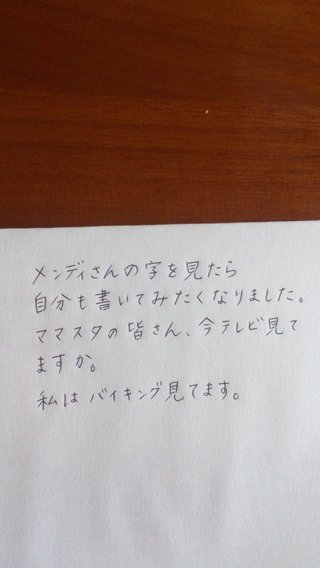 メンディさんの字を見たら
自分も書いてみたくなりました。
ママスタの皆さん、今テレビ見て
ますか。
私はバイキング見てます。